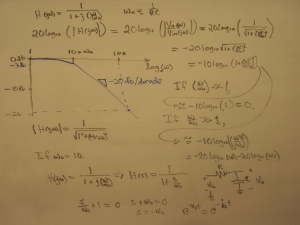 H(jω) = 1/(1+j(ω/ω₀))   ω₀ = 1/RC
20log₁₀(|H(jω)|) = 20log₁₀(|Vout(jω)/Vin(jω)|) = 20log₁₀(1/√(1+(ω/ω₀)²))
= -20log₁₀√(1+(ω/ω₀)²)
= -10log₁₀(1+(ω/ω₀)²)
0db
-3db
1
100
-20db/decade
If (ω/ω₀) ≪ 1,
≅ -10log₁₀(1) = 0.
If ω/ω₀ ≫ 1,
|H(jω)| = 1/√(1²+(ω/ω₀)²)
≅ -10log₁₀(ω²/ω₀²)
= -20log₁₀(ω)
If ω₀ = 10.
H(jω) = 1/(1+j(ω/ω₀)) ⇒ H(s) = 1/(1+s/ω₀)
s/ω₀ + 1 = 0   s+ω₀ = 0
s = -ω₀